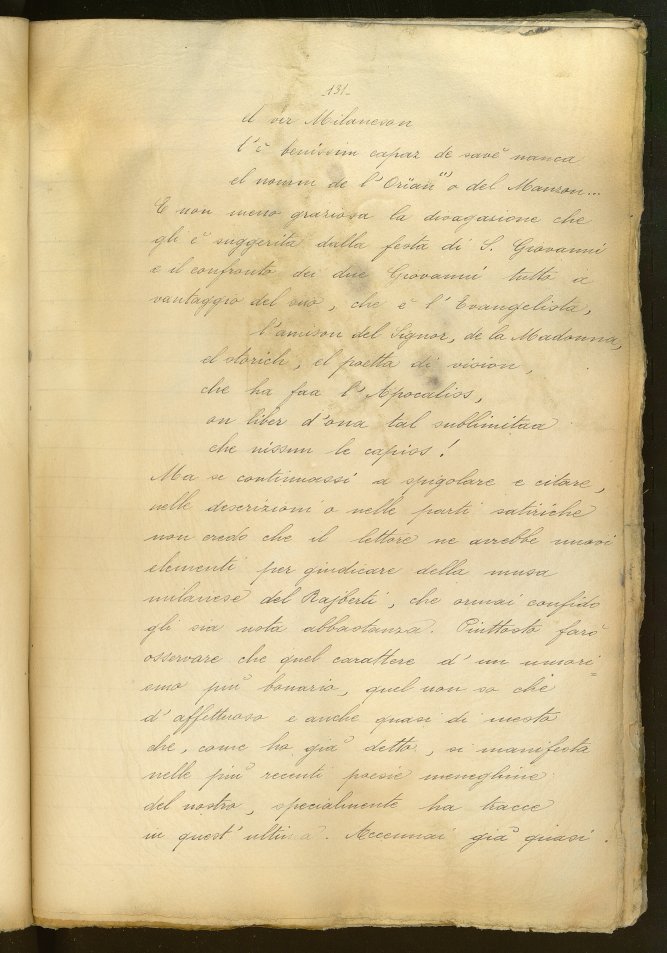 -131-
el ver Milaneson
l'è benissim capaz de savè nanca
el nomm de l'Orian (1) o del Manzon...
E non meno graziosa la divagazione che
gli è suggerita dalla festa di S. Giovanni
e il confronto dei due Giovanni tutto a
vantaggio del suo, che è l'Evangelista,
l'amison del Signor, de la Madonna,
el storich, el poetta di vision,
che ha faa l'Apocaliss,
on liber d'ona tal sublimitaa
che nissun le capiss!
Ma se continuassi a spigolare e citare,
nelle descrizioni o nelle parti satiriche
non credo che il lettore ne avrebbe nuovi
elementi per giudicare della musa
milanese del Rajberti, che ormai confido
gli sia nota abbastanza. Piuttosto farò
osservare che quel carattere d'un umori=
smo più bonario, quel non so che
d'affettuoso e anche quasi di mesto
che, come ho già detto, si manifesta
nelle più recenti poesie meneghine
del nostro, specialmente ha tracce
in quest'ultima. Accennai già quasi